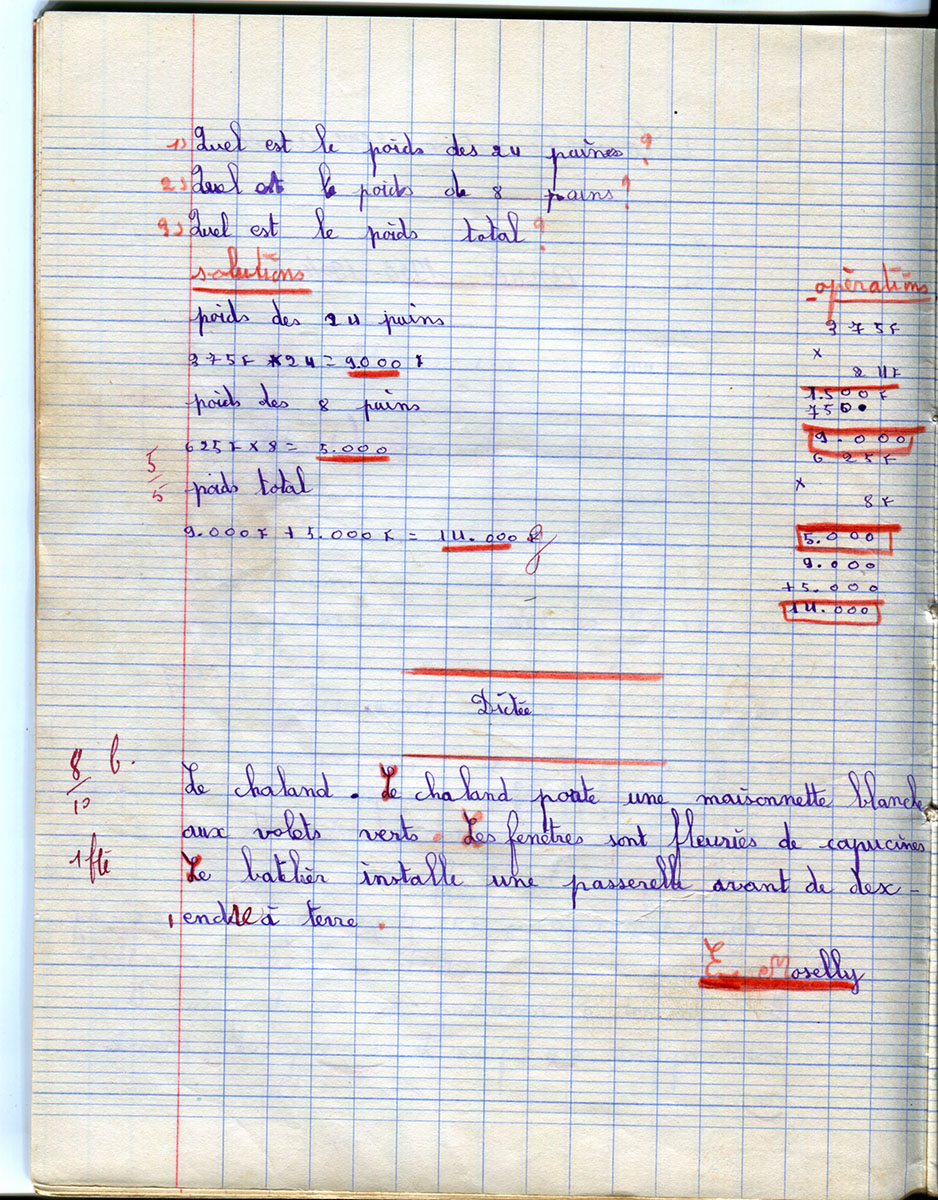 1) Quel est le poids des 24 paines ?
2) Quel est le poids de 8 pains ?
3) Quel est le poids total ?
solutions
opérations
poids des 24 pains
375F × 24 = 9.000
poids des 8 pains
625F × 8 = 5.000
5/5
poids total
9.000F + 5.000F = 14.000 g
375F
×
24F
1.500F
750
9.000
625F
×
8F
5.000
9.000
+5.000
14.000
Dictée
8/10 b.
1 fte
Le chaland. Le chaland porte une maisonnette blanche
aux volets verts. Les fenêtres sont fleuries de capucines
Le batelier installe une passerelle avant de dex-
endre à terre.
E. Moselly